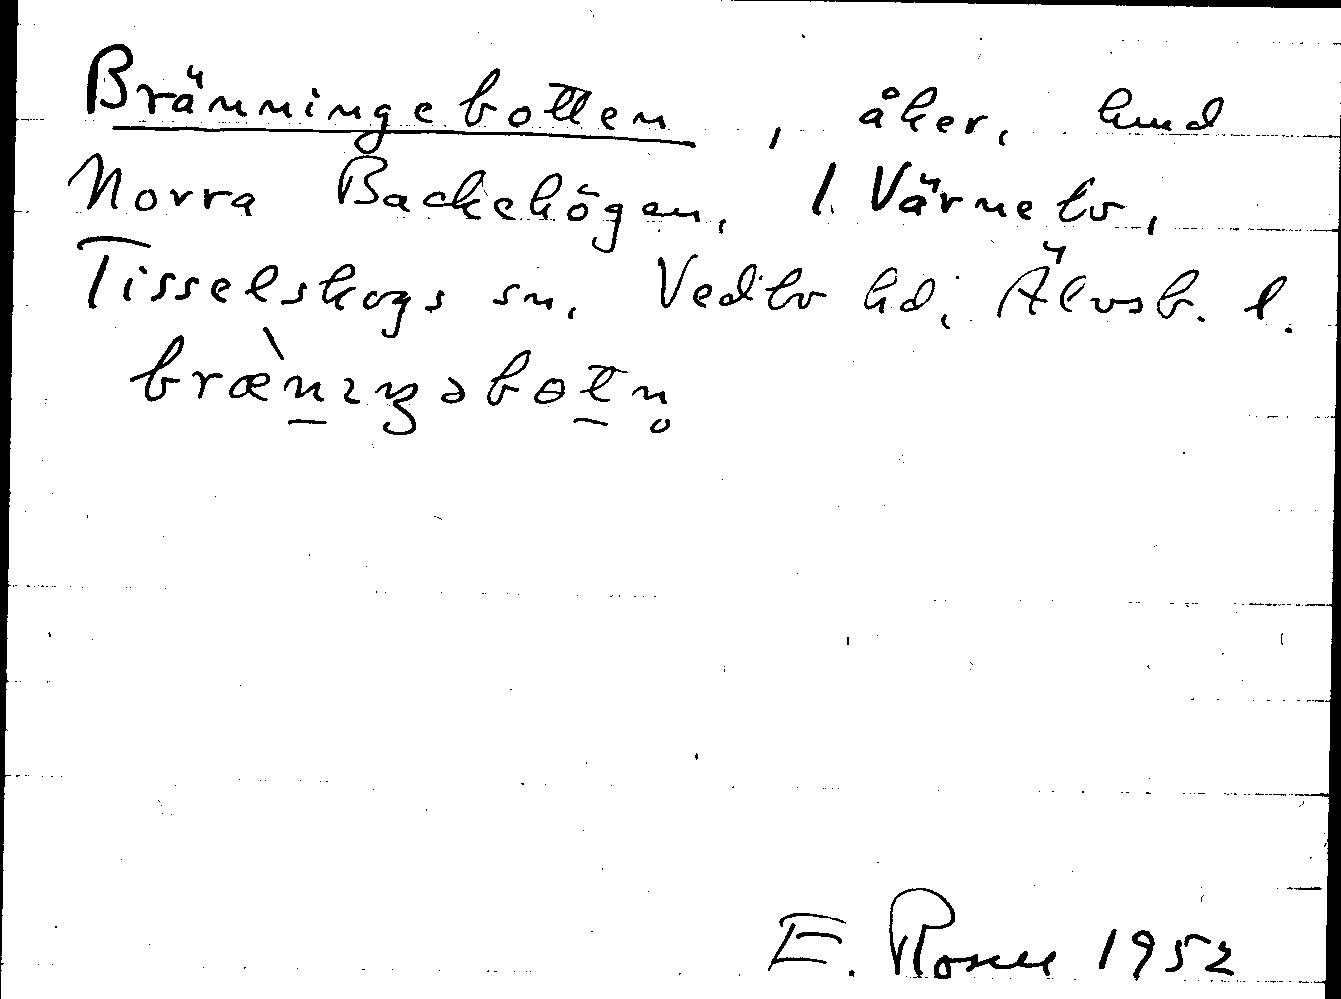 Bränningebotten, åker, hmd
Norra Backehögen, 1. Värnebo,
Tisselskogs sn, Vedbo hd, Älvsb. l.
bræ̀n̲ıŋəbot̲n̥
E. Rosell 1952